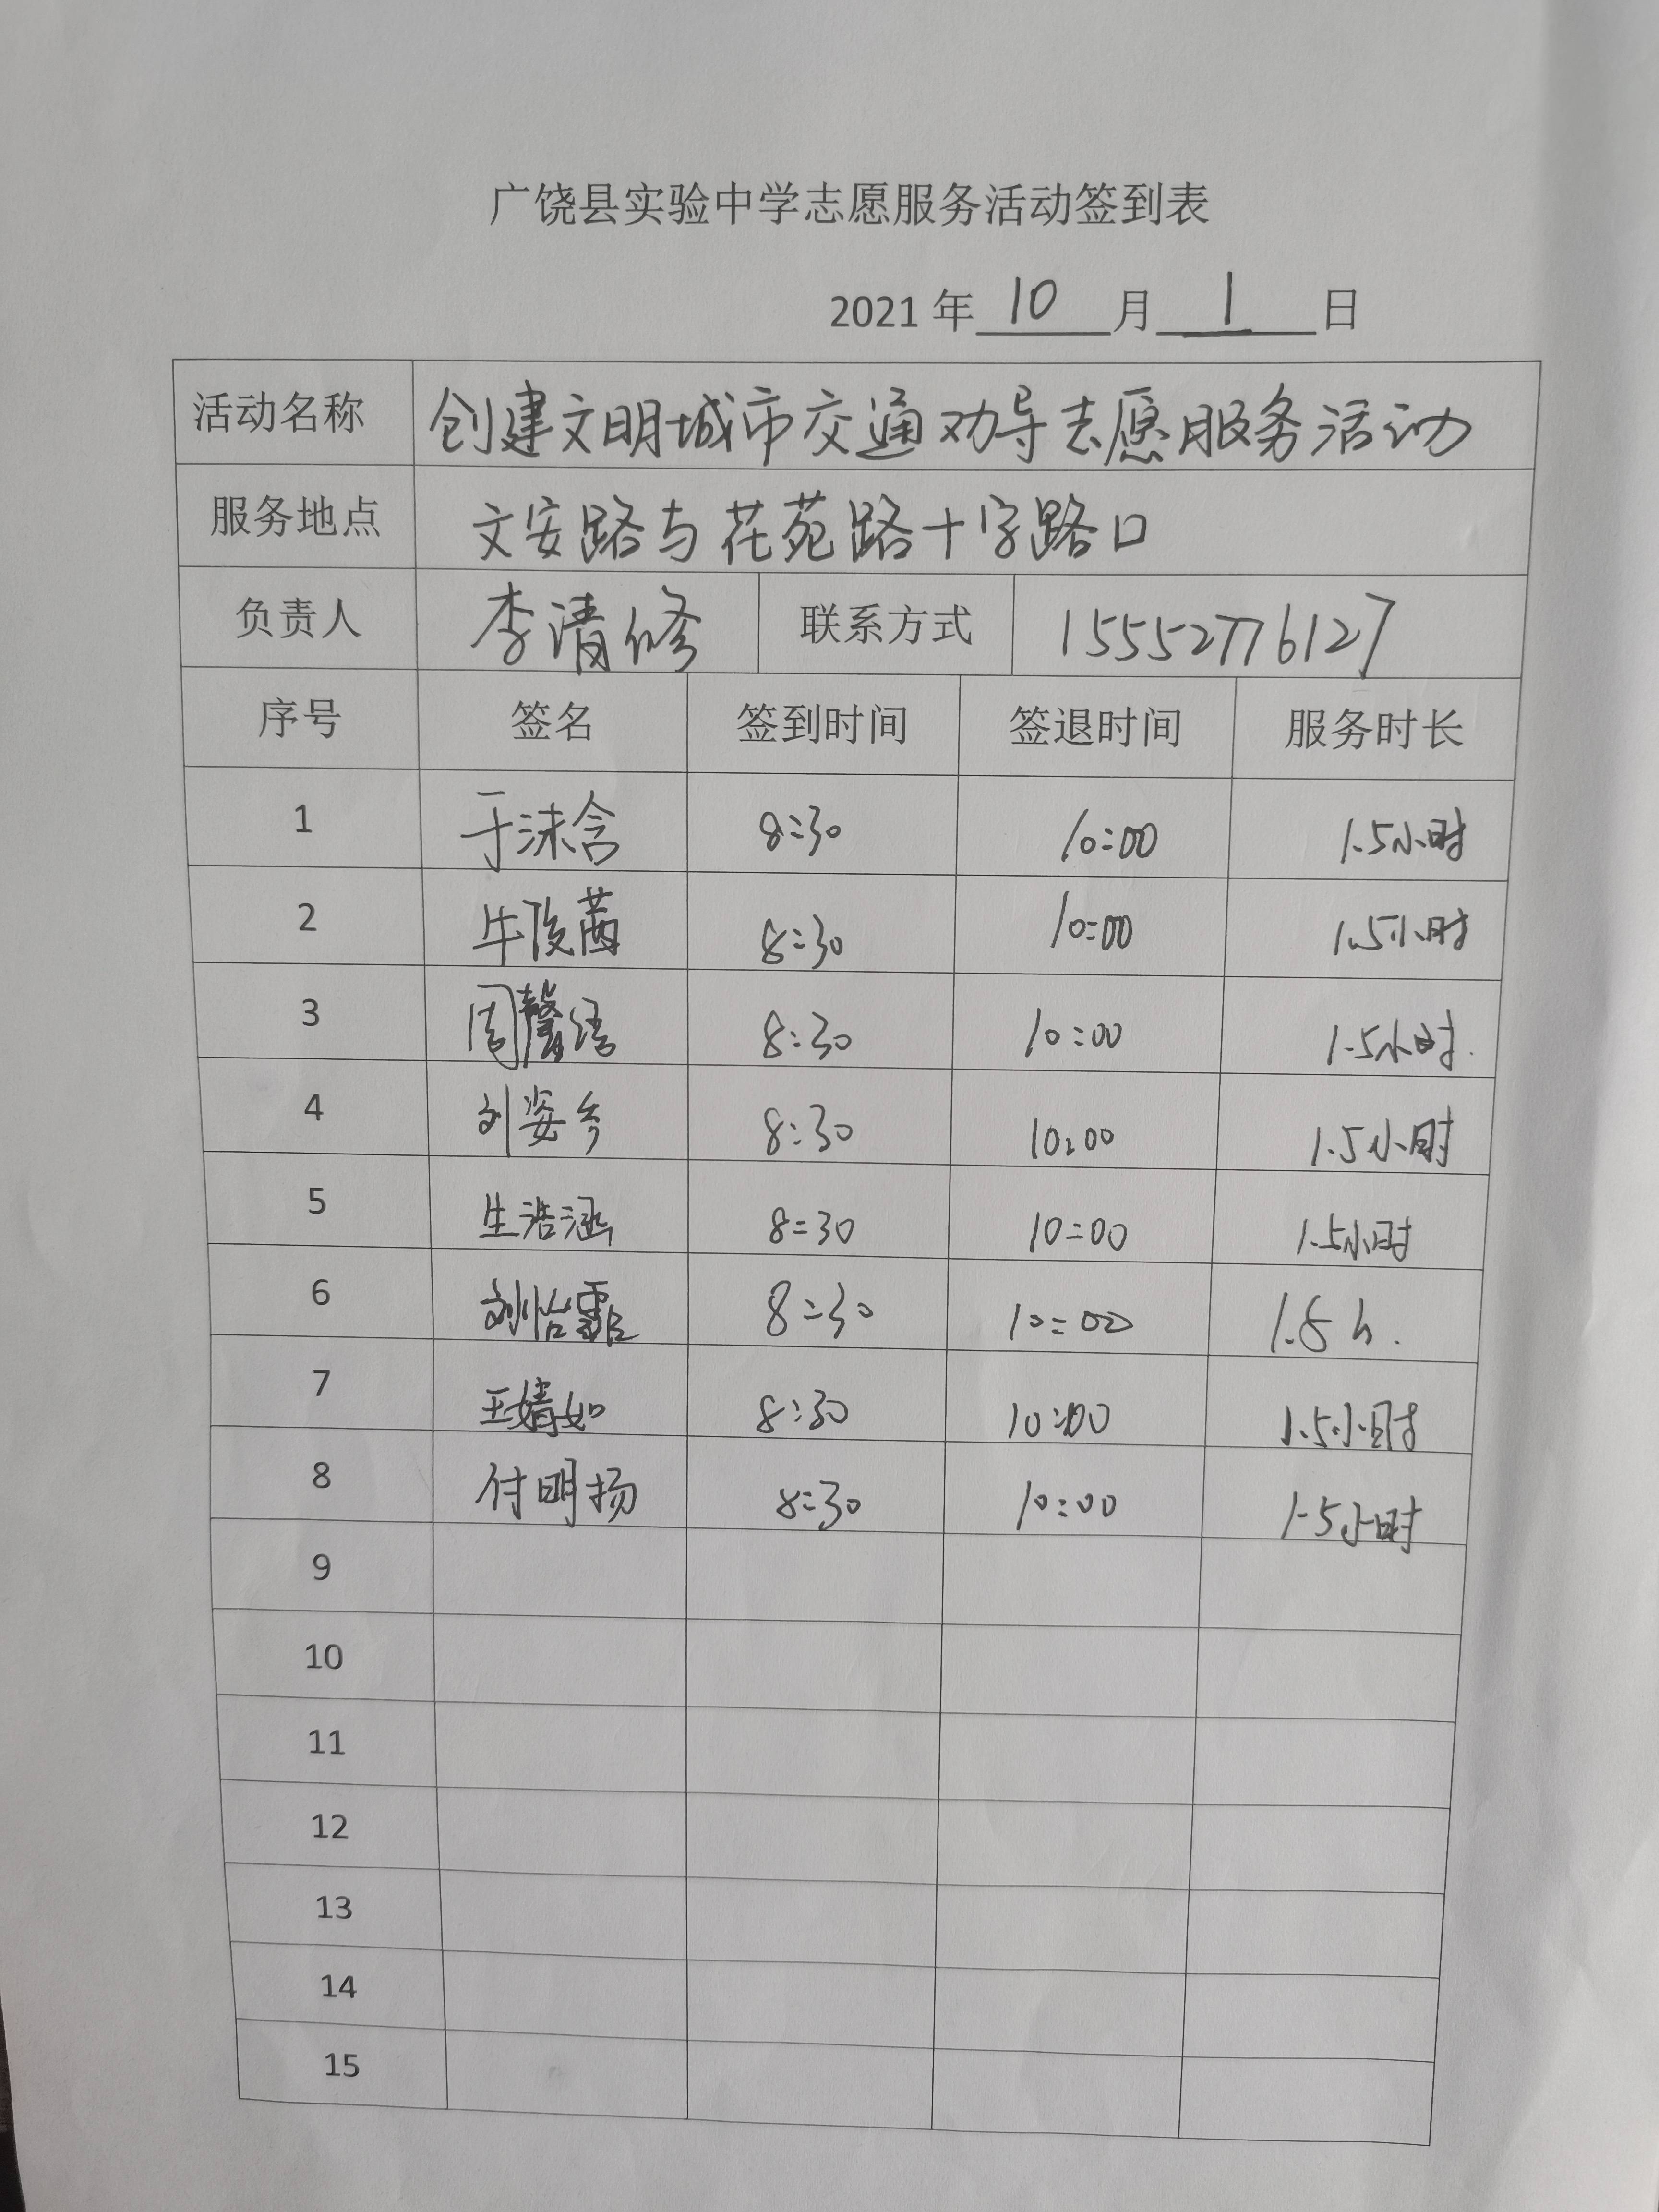 广饶县实验中学志愿服务活动签到表
2021 年 10 月 1 日
活动名称 创建文明城市交通劝导志愿服务活动
服务地点 文安路与花苑路十字路口
负责人 李清修 联系方式 15552776127
序号 签名 签到时间 签退时间 服务时长
1 于沫含 8:30 10:00 1.5小时
2 牛俊茜 8:30 10:00 1.5小时
3 周馨 8:30 10:00 1.5小时.
4 刘姿 8:30 10:00 1.5小时
5 生浩涵 8:30 10:00 1.5小时
6 刘怡霏 8:30 10:00 1.5h.
7 王婧如 8:30 10:00 1.5小时
8 付明扬 8:30 10:00 1.5小时
9
10
11
12
13
14
15